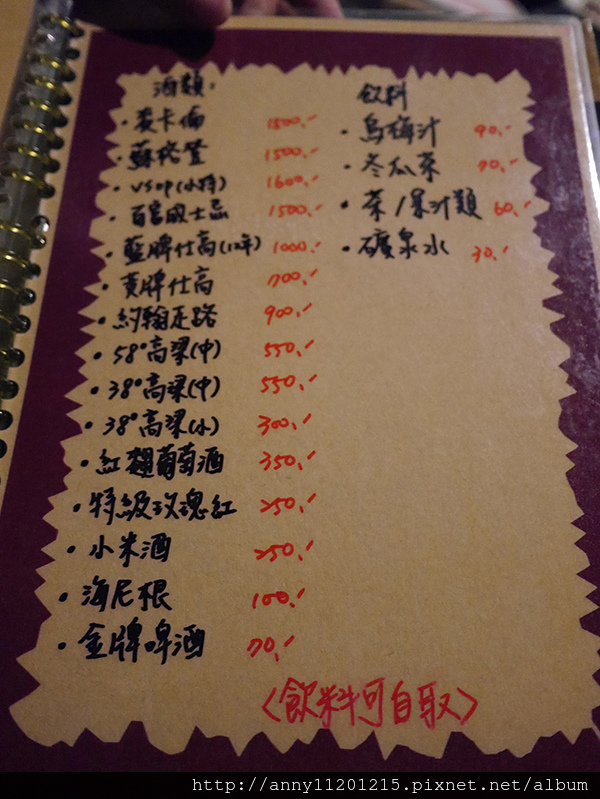 酒類:
・麥卡倫 1800.-
・蘇格登 1500.-
・VSOP(小特) 1600.-
・百富威士忌 1500.-
・藍牌仕高(12年) 1000.-
・黃牌仕高 700.-
・約翰走路 900.-
・58°高梁(中) 550.-
・38°高梁(中) 550.-
・38°高梁(小) 300.-
・紅翹葡萄酒 350.-
・特級玫瑰紅 250.-
・小米酒 250.-
・海尼根 100.-
・金牌啤酒 70.-
飲料
・烏梅汁 90.-
・冬瓜茶 70.-
・茶/果汁類 60.-
・礦泉水 30.-
〈飲料可自取〉
http://anny11201215.pixnet.net/album